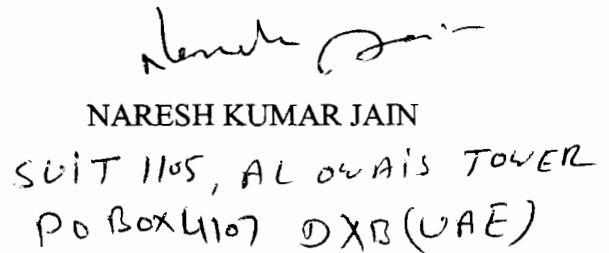 Naresh Jain
NARESH KUMAR JAIN
SUIT 1105, AL OWAIS TOWER
PO BOX 4107 DXB (UAE)